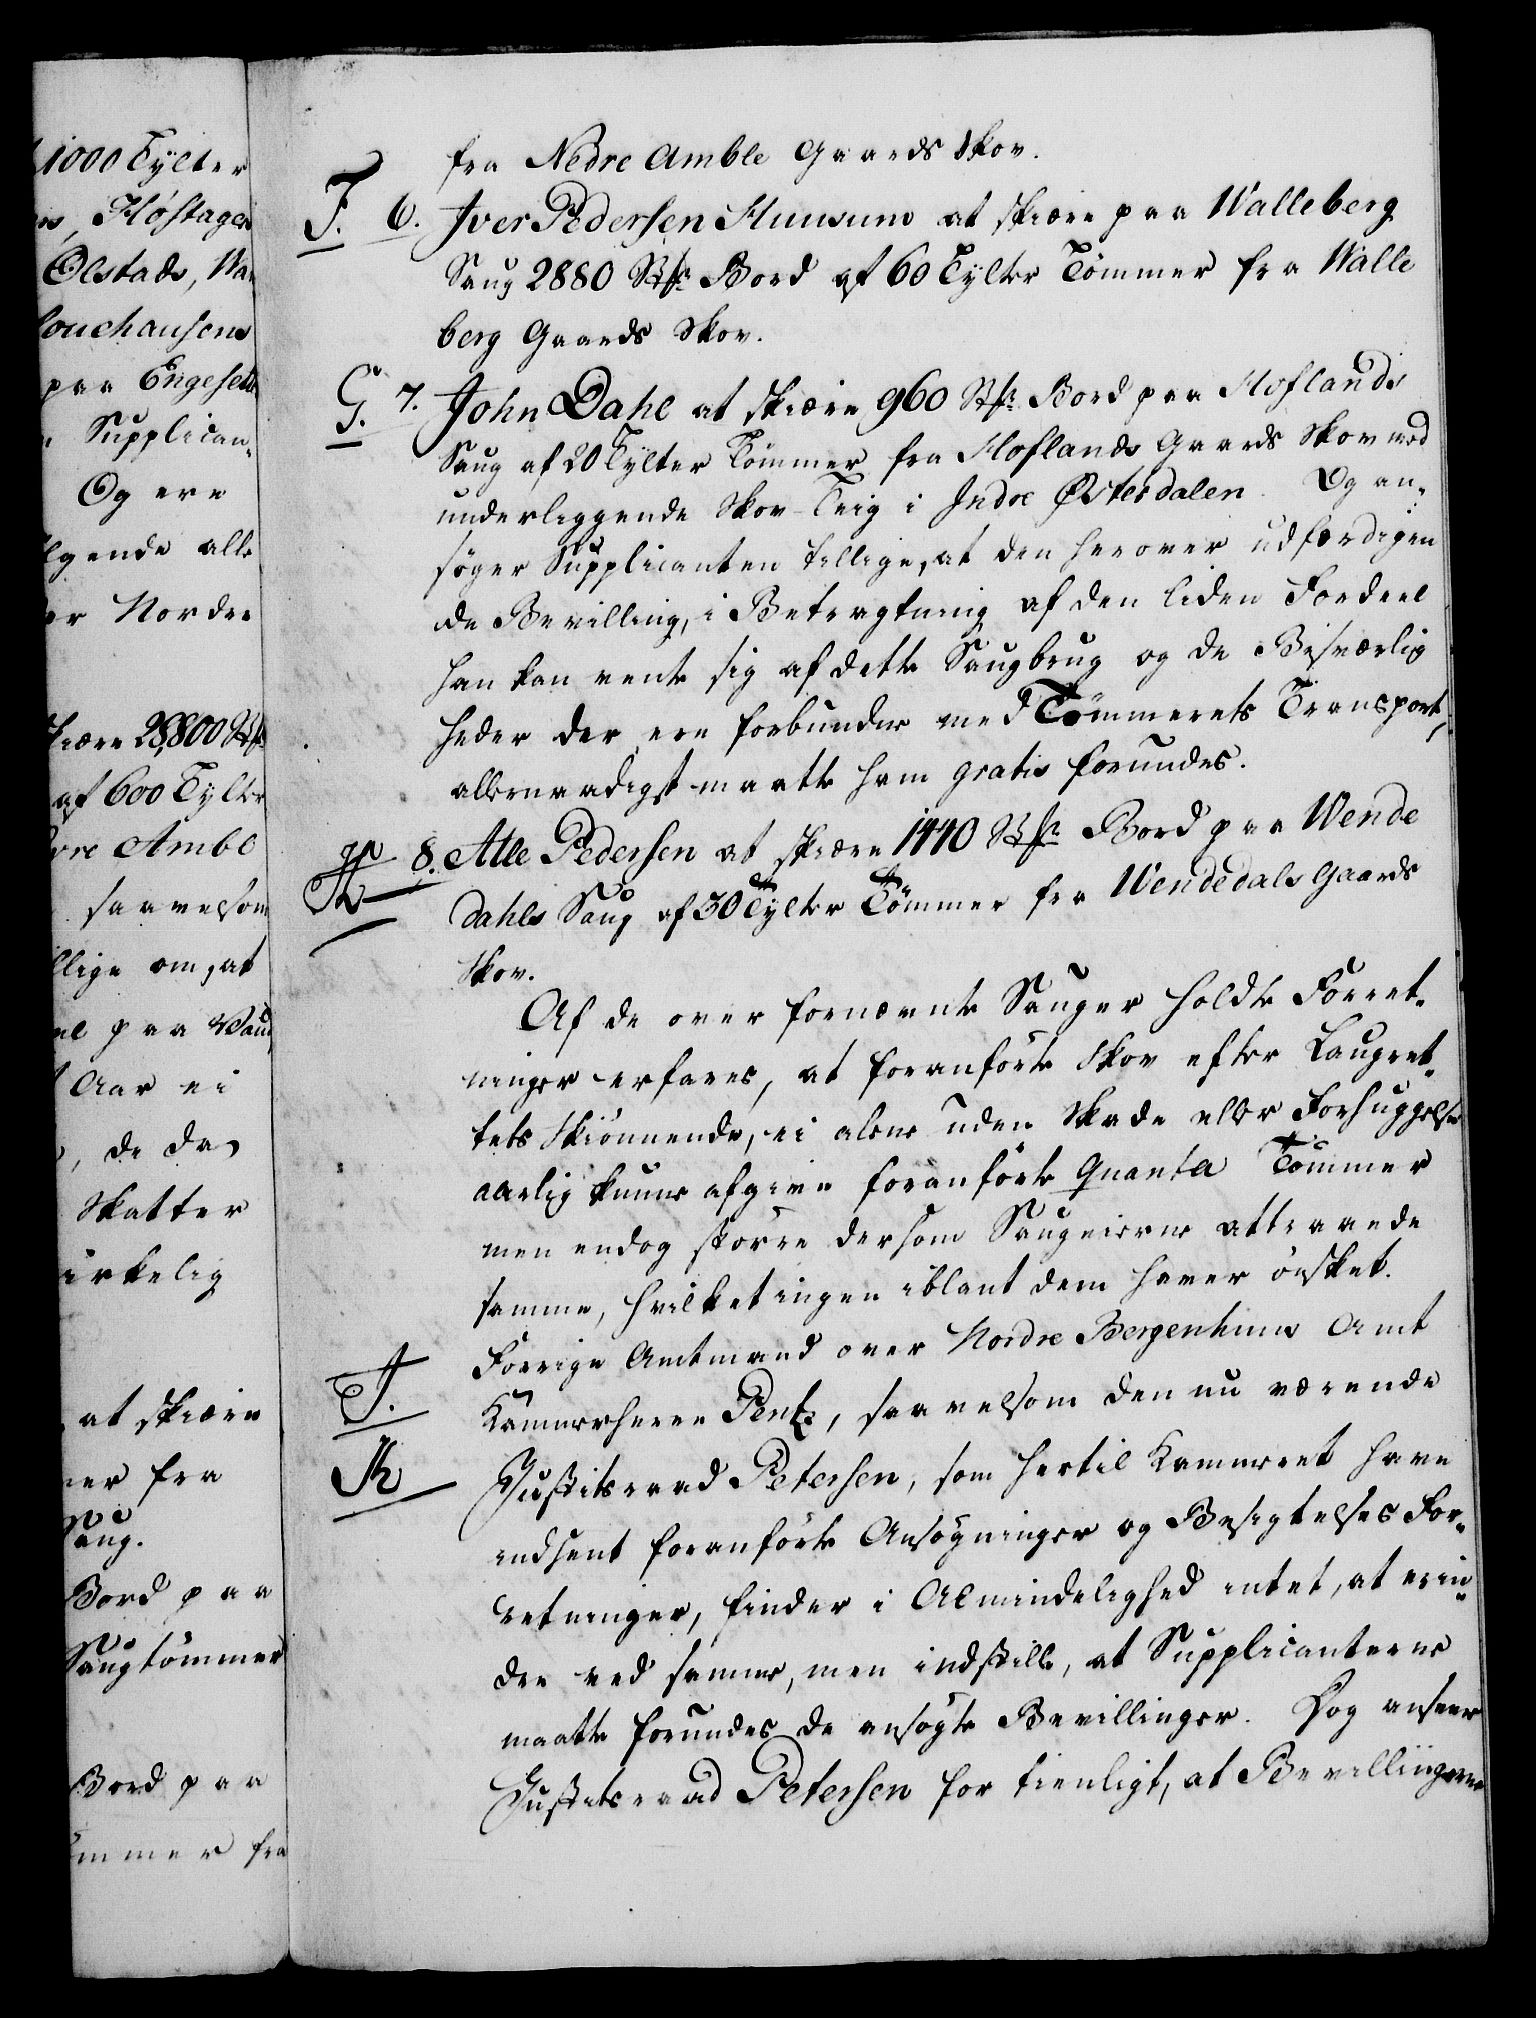 1000 Tylter
Høstager
Olstads, Wa
louchausens
paa Engesetts
Supplican-
Og ere
lgende alle
er Nordre
skiære 28,800 Stk
af 600 Tylter
dre Amble
saavelsom
llige om, at
el paa Waud
Aar ei
, de da
Skatter
irkelig
at skiære
er fra
Saug.
Bord paa
Saugtømmer
Bord paa
ømmer fra
fra Nedre Amble Gaards Skov.
F. 6. Iver Pedersen Huusum at skiære paa Walleberg
Saug 2880 Stk: Bord af 60 Tylter Tømmer fra Walle
berg Gaards Skov.
G. 7. John Dahl at skiære 960 Stk: Bord paa Hoflands
Saug af 20 Tylter Tømmer fra Hoflands Gaards Skov med
underliggende Skov-Teig i Indre Østerdalen. Og an-
søger Supplicanten tillige, at den herover udfærdigen
de Bevilling, i Betragtning af den liden Fordeel
han kan vente sig af dette Saugbrug og de Besværlig
heder der ere forbunden med Tømmerets Transport,
allernaadigst maatte ham gratis forundes.
H 8. Atle Pedersen at skiære 1440 Stk: Bord paa Wende
dahls Saug af 30 Tylter Tømmer fra Wendedals Gaards
Skov.
Af de over fornævnte Sauger holdte Forret-
ninger erfares, at foranførte Skov efter Laugret-
tets Skiønnende, ei alene uden Skade eller Forhuggelse
aarlig kunne afgive foranførte Quanta Tømmer
men endog større dersom Saugeierne attraaede
samme, hvilket ingen iblant dem haver ønsket.
Forrige Amtmand over Nordre Bergenhuus Amt
I. Kammerherre Pentz, saavelsom den nu værende
K Justitsraad Petersen, som hertil Kammeret have
indsent foranførte Ansøgninger og Besigtelses For-
retninger, finder i Almindelighed intet, at erin-
dre ved samme, men indstille, at Supplicanterne
maatte forundes de ansøgte Bevillinger. Dog anseer
Justitsraad Petersen for tienligt, at Bevillingerne